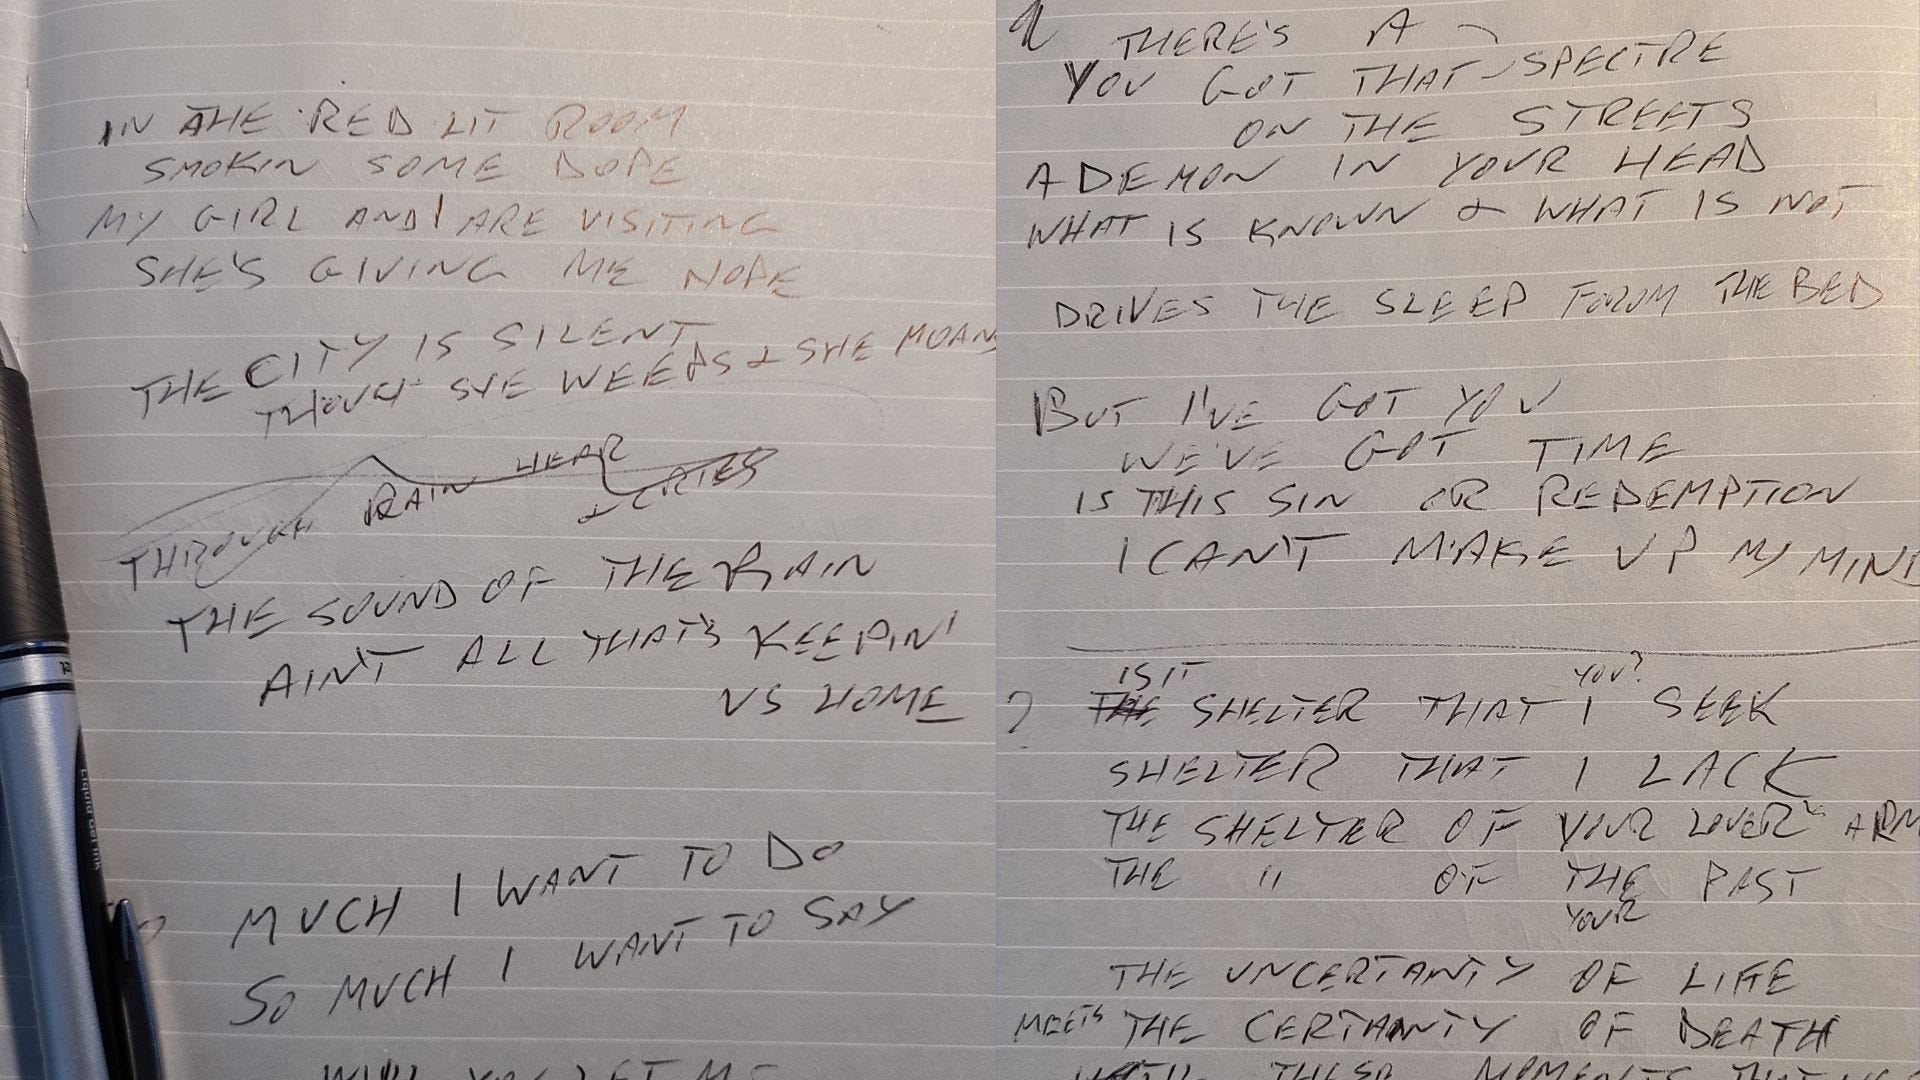 IN THE RED LIT ROOM
SMOKIN SOME DOPE
MY GIRL AND I ARE VISITING
SHE'S GIVING ME HOPE
THE CITY IS SILENT
THOUGH SHE WEEPS & SHE MOANS
THROUGH RAIN HEAR & CRIES
THE SOUND OF THE RAIN
AIN'T ALL THAT'S KEEPIN'
US HOME
MUCH I WANT TO DO
SO MUCH I WANT TO SAY
WILL YOU LET ME
Liquid Gel Ink
THERE'S A
YOU GOT THAT SPECTRE
ON THE STREETS
A DEMON IN YOUR HEAD
WHAT IS KNOWN & WHAT IS NOT
DRIVES THE SLEEP FROM THE BED
BUT I'VE GOT YOU
WE'VE GOT TIME
IS THIS SIN OR REDEMPTION
I CAN'T MAKE UP MY MIND
IS IT YOU?
? THE SHELTER THAT I SEEK
SHELTER THAT I LACK
THE SHELTER OF YOUR LOVER'S ARM
THE " OF THE PAST
YOUR
THE UNCERTANTY OF LIFE
MEETS THE CERTANTY OF DEATH
THESE MOMENTS THAT